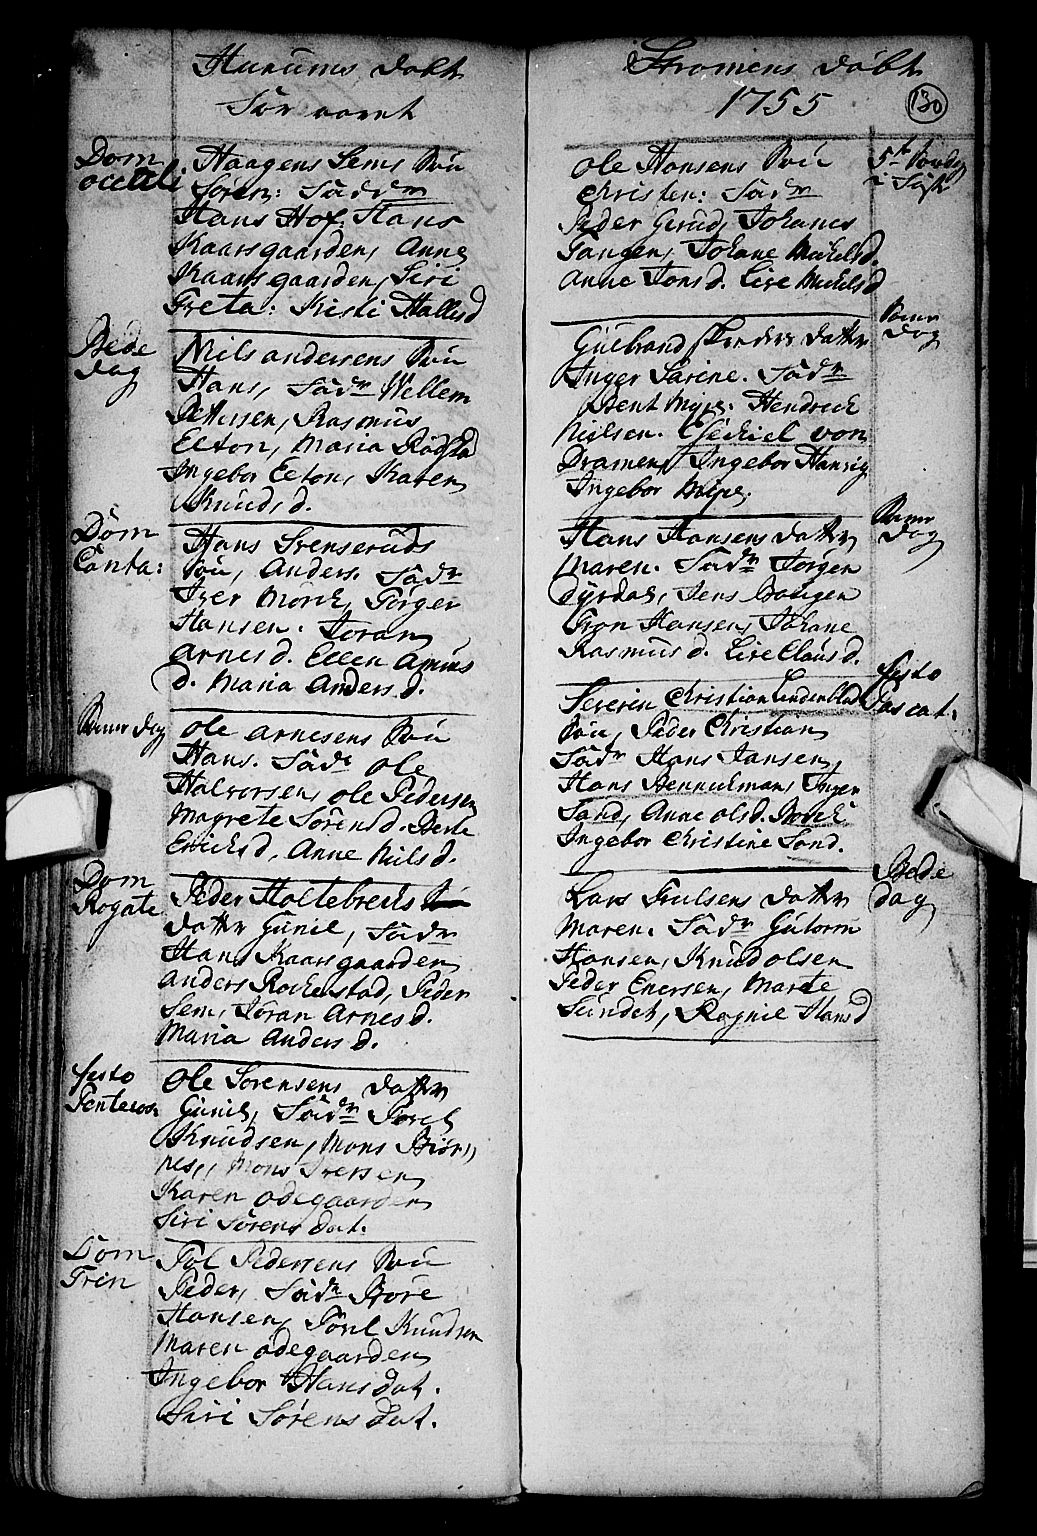 Hurums Døbt
for aaret
Dom
occuli
Haagens Sems Søn
Søren: Fadd:
Hans Hof: Hans
Kaarsgaarden, Anne
Kaarsgaarden, Siri
Greta: Kisti Hallesd
Bede
dag
Nils Andersens Søn
Hans, Fad: Wellem
Pettersen, Rasmus
Elton, Maria Rødstad
Ingebor Eeton, Karen
Knuds d.
Dom
Canta:
Hans Svenseruds
Søn, Anders. Fad:
Iver Morch, Jørger
Hansen. Joran
Arnes d. Ellen Amus
d. Maria Anders d.
Bønne dag
Ole Arnesens Søn
Hans. Fad: Ole
Halvorsen, Ole Pedersen
Magrete Sørens d. Berte
Ericks d, Anne Nils d.
Dom
Rogate
Peder Holtebrechs
datter Gunil, Fad:
Hans Kaarsgaarden
Anders Rockestad, Peder
Sem, Joran Arnes d.
Maria Anders d.
festo
Pentecos:
Ole Sørensens datter
Gunil, Fad: Torel
Knudsen, Mons Biør=
nes, Mons Iversen
Karen Ødegaarden
Siri Sørens dat.
Dom
Trin
Tol Pedersens Søn
Peder, Fad: Tore
Hansen, Torel Knudsen
Maren Ødegaarden
Ingebor Hans dat.
Siri Sørens dat.
Strømens Døbt
1755
130
Ole Hansens Søn
Christen: Fad:
Peder Gerud, Johanes
Tangen, Johane Mickelsd.
Anne Jons d. Live Mickels d
5te Søndag
i Faste
Gulbrand datter
Inger Sarine. Fad:
Bent Mype. Hendrick
Nielsen. Esechiel von
Dramen, Ingebor Hansig
Ingebor Mype.
Bønne
dag
Hans Hansens datter
Maren. Fad: Jørgen
Dyrdal, Jens Bangen
Tron Hansen, Johane
Rasmus d. Live Claus d.
Bønne
dag
Severin Christian Lendenblads
Søn, Peder Christian
Fad: Hans Jansen,
Hans Hennickman, Inger
Sand, Anne Ols d. Morch
Ingebor Christine Sond.
festo
Pascat.
Lars Truelsens datter
Maren. Fad: Gutorm
Hansen, Knud Olsen
Peder Enersen, Marte
Sundet, Ragnil Hans d
Bede
dag